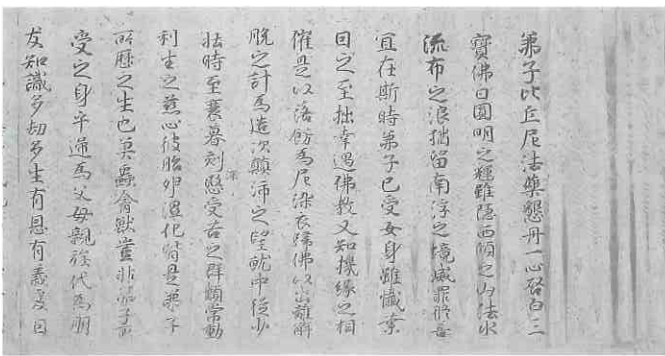 弟子比丘尼法藥懇丹一心啓白三
寶佛日圓明之輝雖隱西傾之山法水
流布之浪猶留南浮之境滅罪修善
宜在斯時弟子已受女身雖懺業
因之至拙幸遇佛教又知機緣之相
催是以落餝為尼染衣歸佛以出離解
脫之計為造次顛沛之望就中從少
壮時至衰暮刻深愍受苦之群類常動
利生之慈心彼胎卵濕化皆是弟子
所歷之生也莫蟲禽獸豈非弟子前
受之身乎遞為父母親族代為朋
友知識多劫多生有恩有義